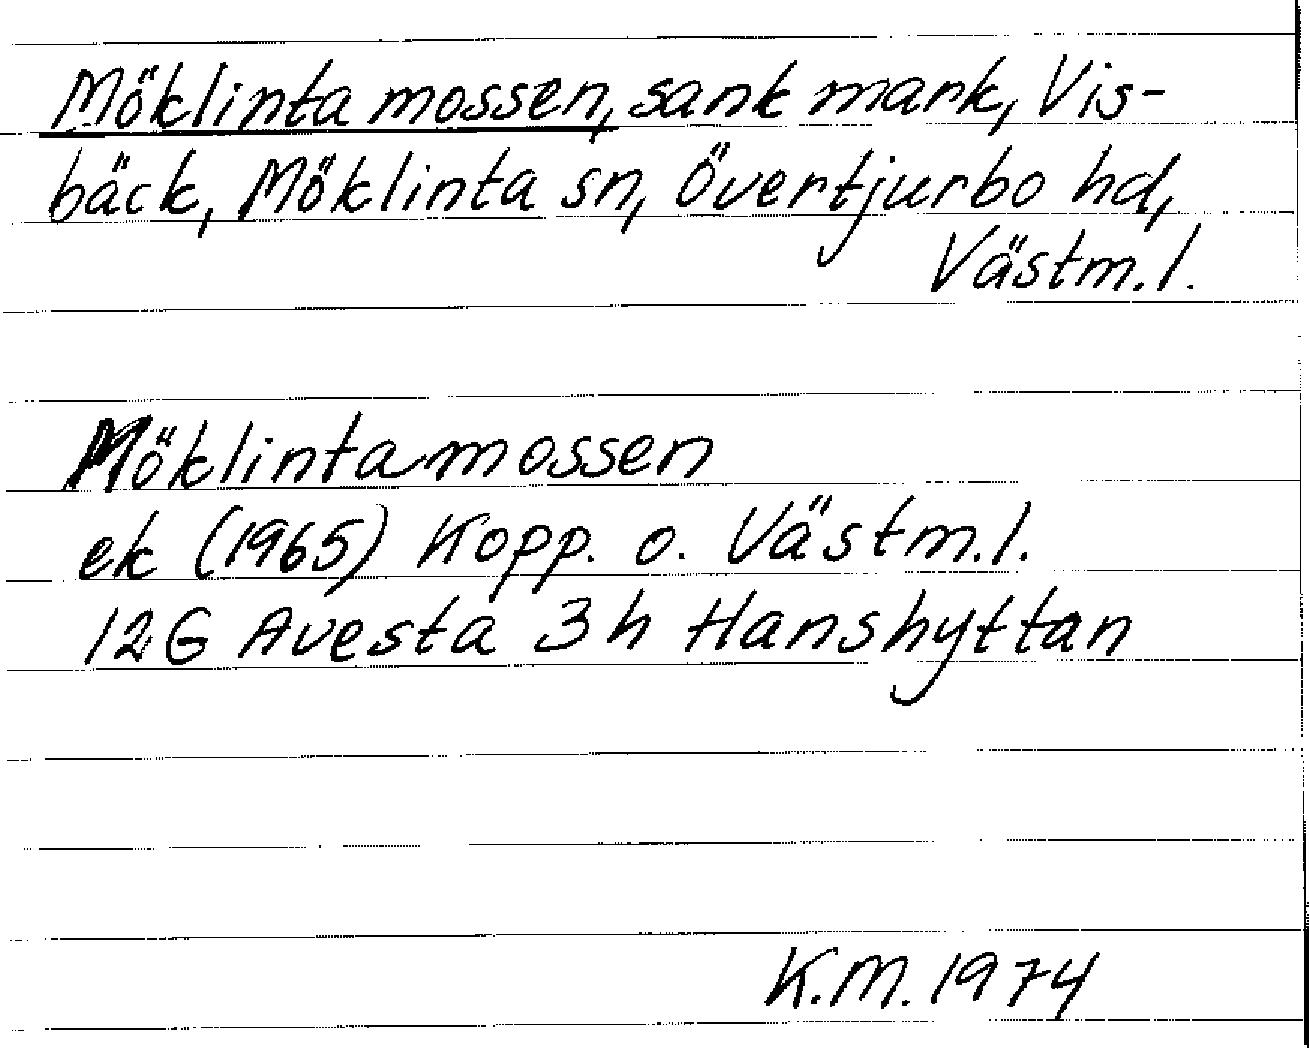 Möklinta mossen, sank mark, Vis-
bäck, Möklinta sn, Övertjurbo hd,
Västm.l.
Möklintamossen
ek (1965) Kopp. o. Västm.l.
12G Avesta 3h Hanshyttan
K.M. 1974